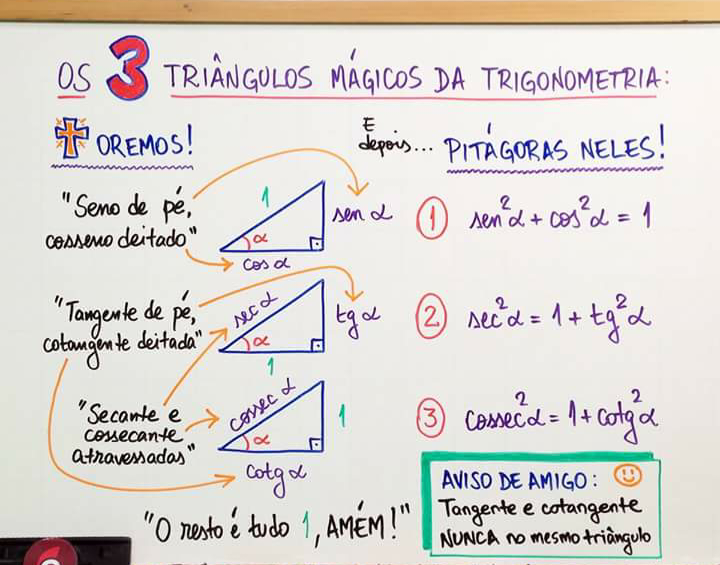 OS 3 TRIÂNGULOS MÁGICOS DA TRIGONOMETRIA:
OREMOS!
E
depois... PITÁGORAS NELES!
"Seno de pé,
cosseno deitado"
1
sen α
α
cos α
1 sen²α + cos²α = 1
"Tangente de pé,
cotangente deitada"
sec α
tg α
α
1
2 sec²α = 1 + tg²α
"Secante e
cossecante
atravessadas"
cossec α
1
α
cotg α
3 cossec²α = 1 + cotg²α
"O resto é tudo 1, AMÉM!"
AVISO DE AMIGO:
Tangente e cotangente
NUNCA no mesmo triângulo